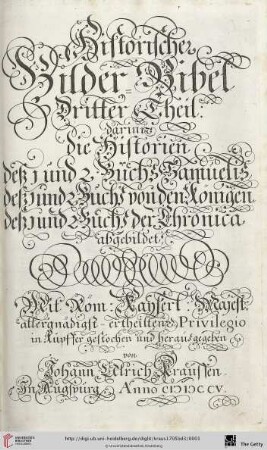 Historischer
Bilder-Bibel
Dritter Theil.
darinn
die Historien
deß 1 und 2. Buchs Samuelis
deß 1 und 2 Buchs von den Königen
deß 1 und 2 Buchs der Chronica
abgebildet.
Mit Röm: Kayserl: Majest:
allergnädigst-ertheiltem Privilegio
in Kupffer gestochen und herausgegeben
von
Johann Ulrich Kraussen
In Augspurg Anno CIƆIƆCCV.
http://digi.ub.uni-heidelberg.de/diglit/kraus1705bd3/0003
© Universitätsbibliothek Heidelberg
UNIVERSITÄTS-
BIBLIOTHEK
HEIDELBERG
The Getty